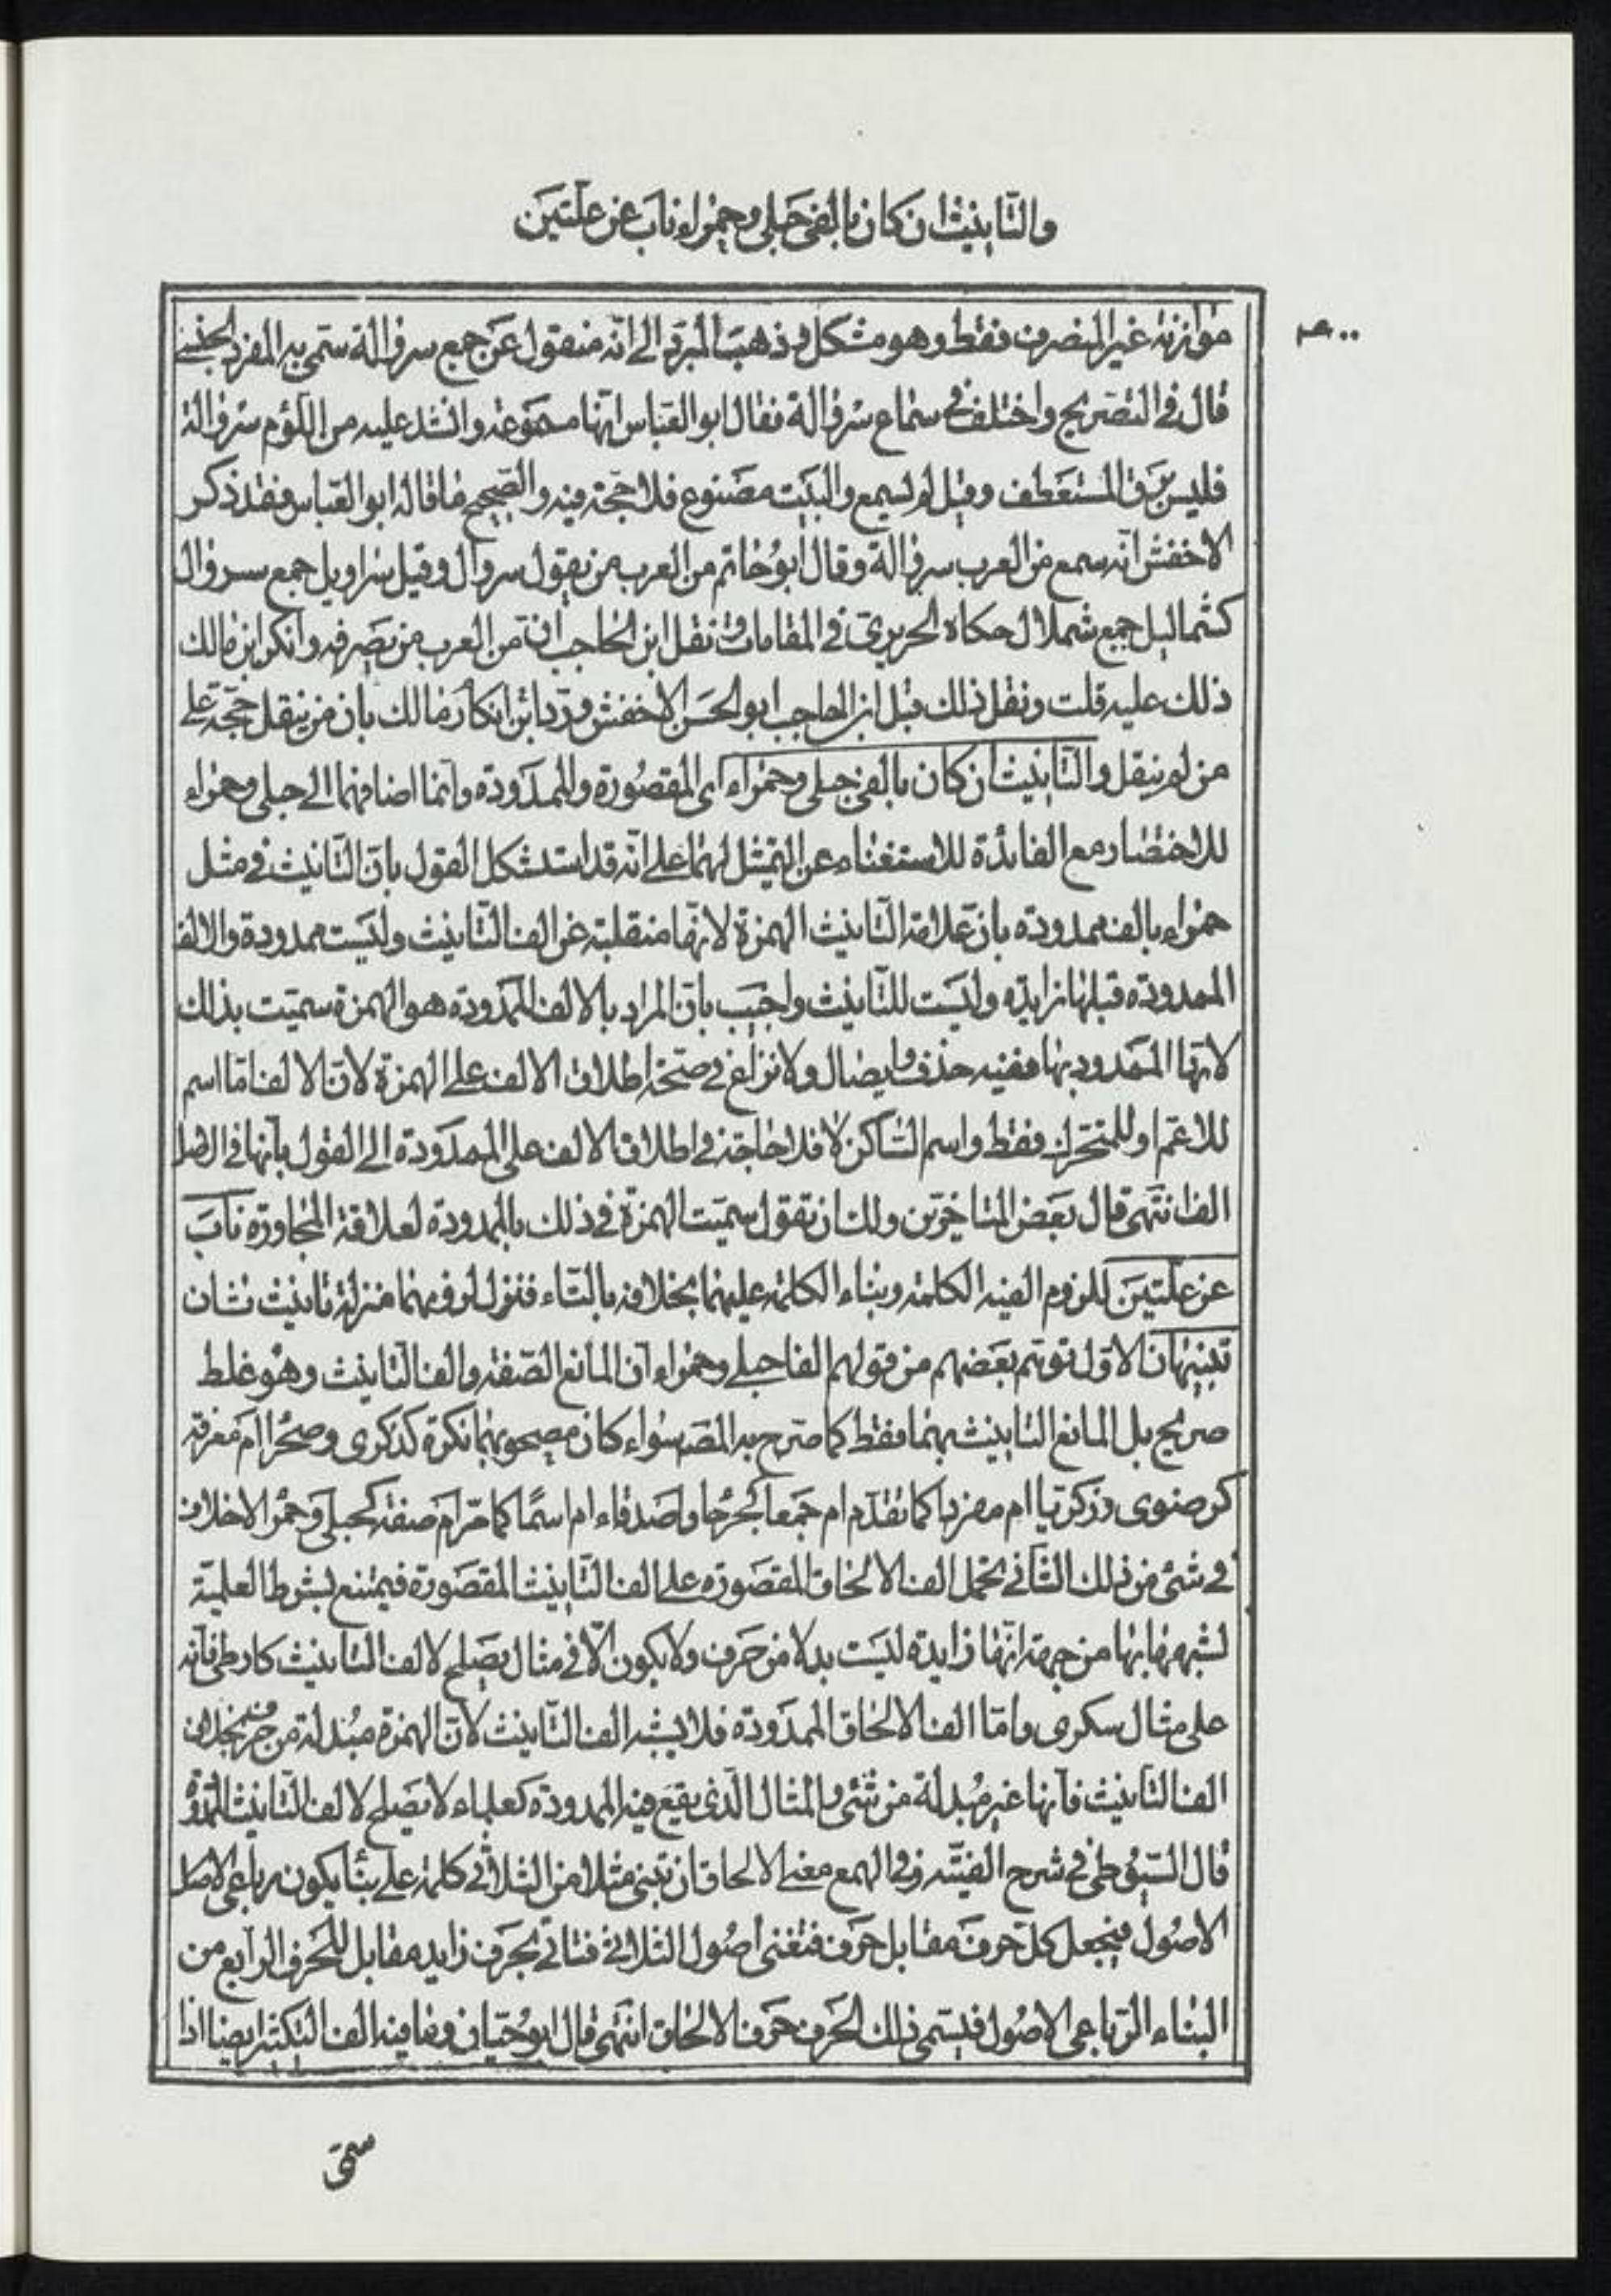 والتأنيث ان كان بالفي حبلى وحمراء ناب عن علتين
موازنه غير المنصرف فقط وهو مشكل وذهب المبرّد الى انّه منقول عن جمع سروالة سمّي به المفرد الجنسي
قال في التصريح واختلف في سماع سروالة فقال ابو العباس انّها مسموعة وانشد عليه من اللّؤم سروالة
فليس يرقّ لمستعطف وقيل لم يسمع والبيت مصنوع فلا حجّة فيه والصحيح ما قاله ابو العباس فقد ذكر
الاخفش انّه سمع من العرب سروالة وقال ابو حاتم من العرب من يقول سروال وقيل سراويل جمع سروال
كشماليل جمع شملال حكاه الحريري في المقامات ونقل ابن الحاجب انّ من العرب من يصرفه وانكر ابن مالك
ذلك عليه قلت ونقل ذلك قبل ابن الحاجب ابو الحسن الاخفش وردّ ابن انكار مالك بان من ينقل حجّة على
من لم ينقل والتأنيث ان كان بالفي حبلى وحمراء اى المقصورة والممدودة وانّما اضافهما الى حبلى وحمراء
للاختصار مع الفائدة للاستغناء عن التمثيل لهما على انّه قد استشكل القول بانّ التانيث في مثل
حمراء بالف ممدودة بان علامة التّانيث الهمزة لانّها منقلبة عن الف التّانيث وليست ممدودة والالف
الممدودة قبلها زايدة وليست للتّانيث واجيب بانّ المراد بالالف الممدودة هو الهمزة سمّيت بذلك
لانّها الممدود بها ففيه حذف وايصال ولا نزاع في صحّة اطلاق الالف على الهمزة لانّ الالف امّا اسم
للاعمّ او للمتحرك فقط واسم السّاكن لا فلا حاجة في اطلاق الالف على الممدودة الى القول بانّها في الاصل
الف انتهى قال بعض المتأخّرين ولك ان تقول سمّيت الهمزة في ذلك بالممدودة لعلاقة المجاورة ناب
عن علّتين للزوم الفيه الكلمة وبناء الكلمة عليهما بخلافه بالتّاء فنزل لزومهما منزلة تانيث ثان
تنبيهان الاوّل توهّم بعضهم من قولهم الفا حبلى وحمراء انّ المانع الصّفة والف التّانيث وهو غلط
صريح بل المانع التانيث بهما فقط كما صرّح به المصـ سواء كان مصحوبهما نكرة كذكرى وصحرا ام معرفة
كرضوى وزكريّا ام مفردا كما تقدّم ام جمعا كجرحا واصدقاء ام اسمًا كما مرّ ام صفة كحبلى وحمرا لا خلاف
في شئ من ذلك الثّاني تحمل الف الالحاق المقصورة على الف التّانيث المقصورة فيمتنع بشرط العلميّة
لشبهها بها من جهة انّها زايدة ليست بدلا من حرف ولا يكون الّا في مثال يصلح لالف التانيث كارطى فانّه
على مثال سكرى وامّا الف الالحاق الممدودة فلا يشبه الف التّانيث لانّ الهمزة مبدلة من حرف بخلاف
الف التانيث فانّها غير مبدلة من شئ والمثال الّذي يقع فيه الممدودة كعلباء لا يصلح لالف التّانيث الممدودة
قال السّيوطي في شرح الفيّته وفي الهمع معنى الالحاق ان تبني مثلا من الثلاثي كلمة على بناء يكون رباعي الاصل
الاصول فيجعل كلّ حرف مقابل حرف فتفنى اصول الثلاثي فتأتي بحرف زايد مقابل للحرف الرابع من
البناء الرّباعي الاصول فيسمّى ذلك الحرف حرف الالحاق انتهى قال ابو حيّان وما فيه الف التكثير ايضا اذا
سمّى